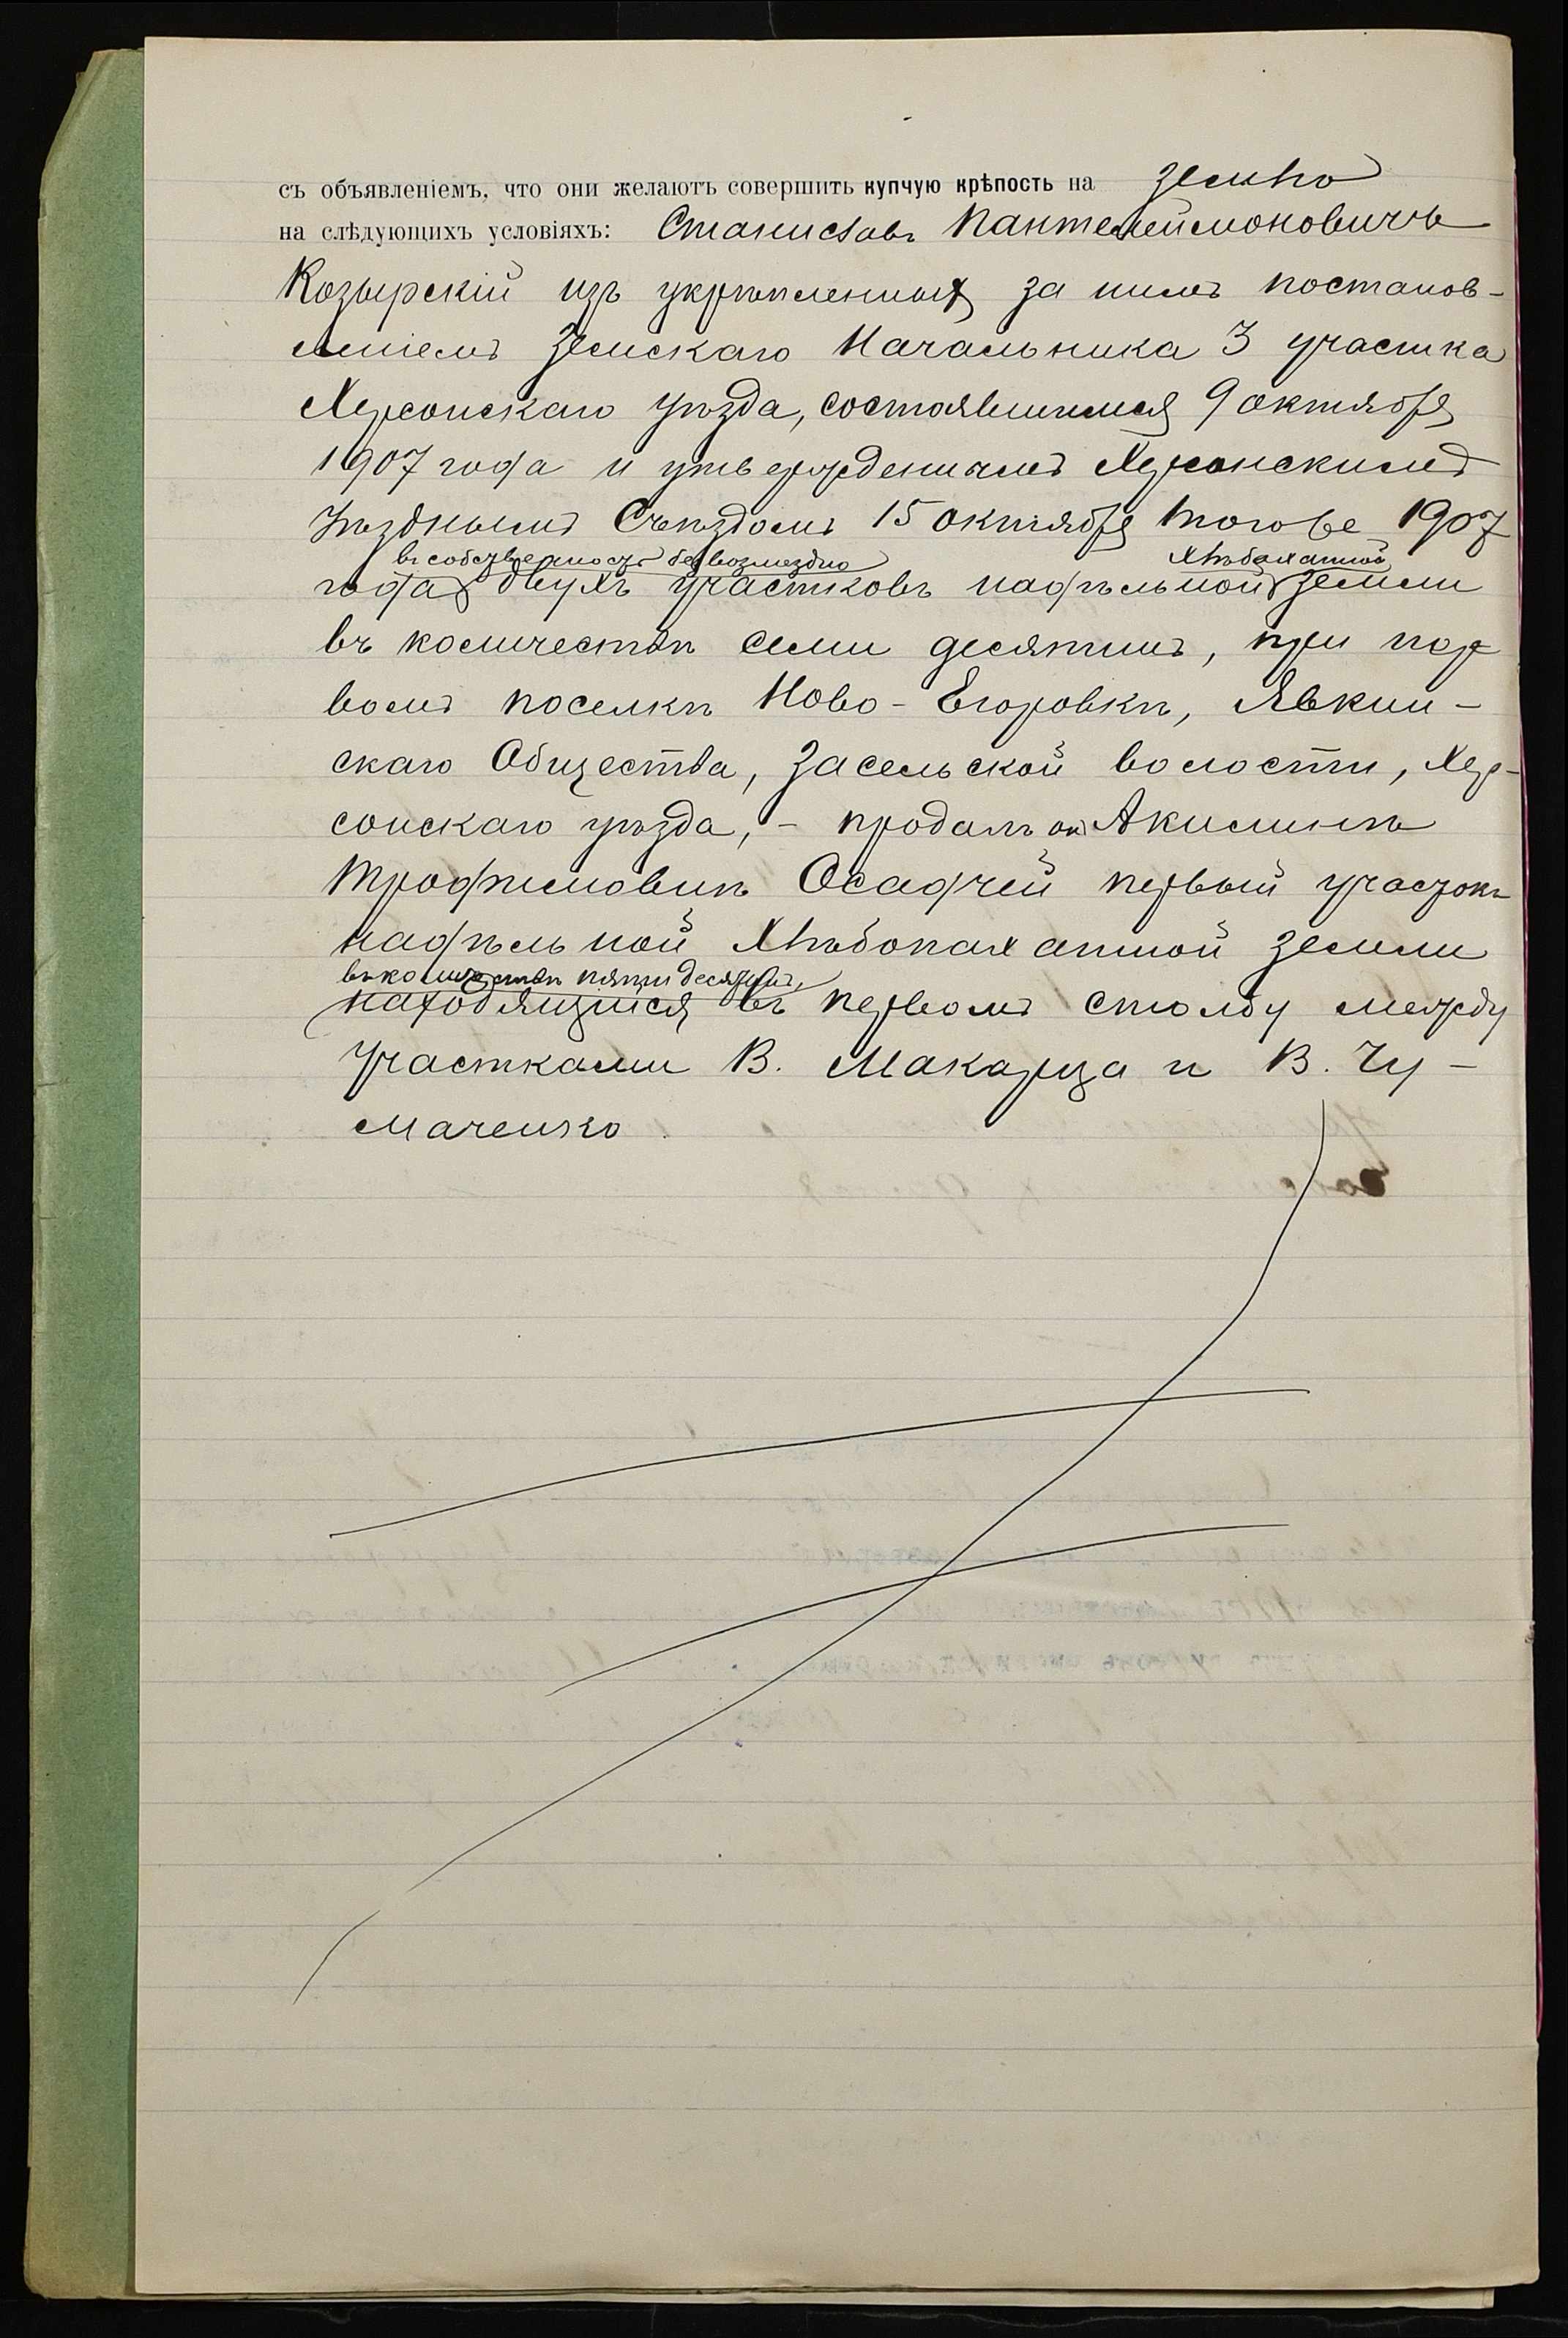 съ объявленіемъ, что они желаютъ совершить купчую крѣпость на землю
на слѣдующихъ условіяхъ: Станиславъ Пантелеймоновичъ
Козырскій изъ укрѣпленныхъ за нимъ постанов-
леніемъ Земскаго Начальника 3 участка
Херсонскаго уѣзда, состоявшимся 9 октября
1907 года и утвержденнымъ Херсонскимъ
Уѣзднымъ Съѣздомъ 15 октября того же 1907
въ собственность безвозмездно хлѣбопахатной
года двухъ участковъ надѣльной земли
въ количествѣ семи десятинъ, при
вомъ поселкѣ Ново-Егоровкѣ, Явкин-
скаго Общества, Засельской волости, Хер-
сонскаго уѣзда, - продалъ онъ Акилинѣ
Трофимовнѣ Осадчей первый участокъ
надѣльной хлѣбопахатной земли
въ количествѣ пяти десятинъ,
находящійся въ первомъ столбу между
участками В. Макарца и В. Чу-
маченко